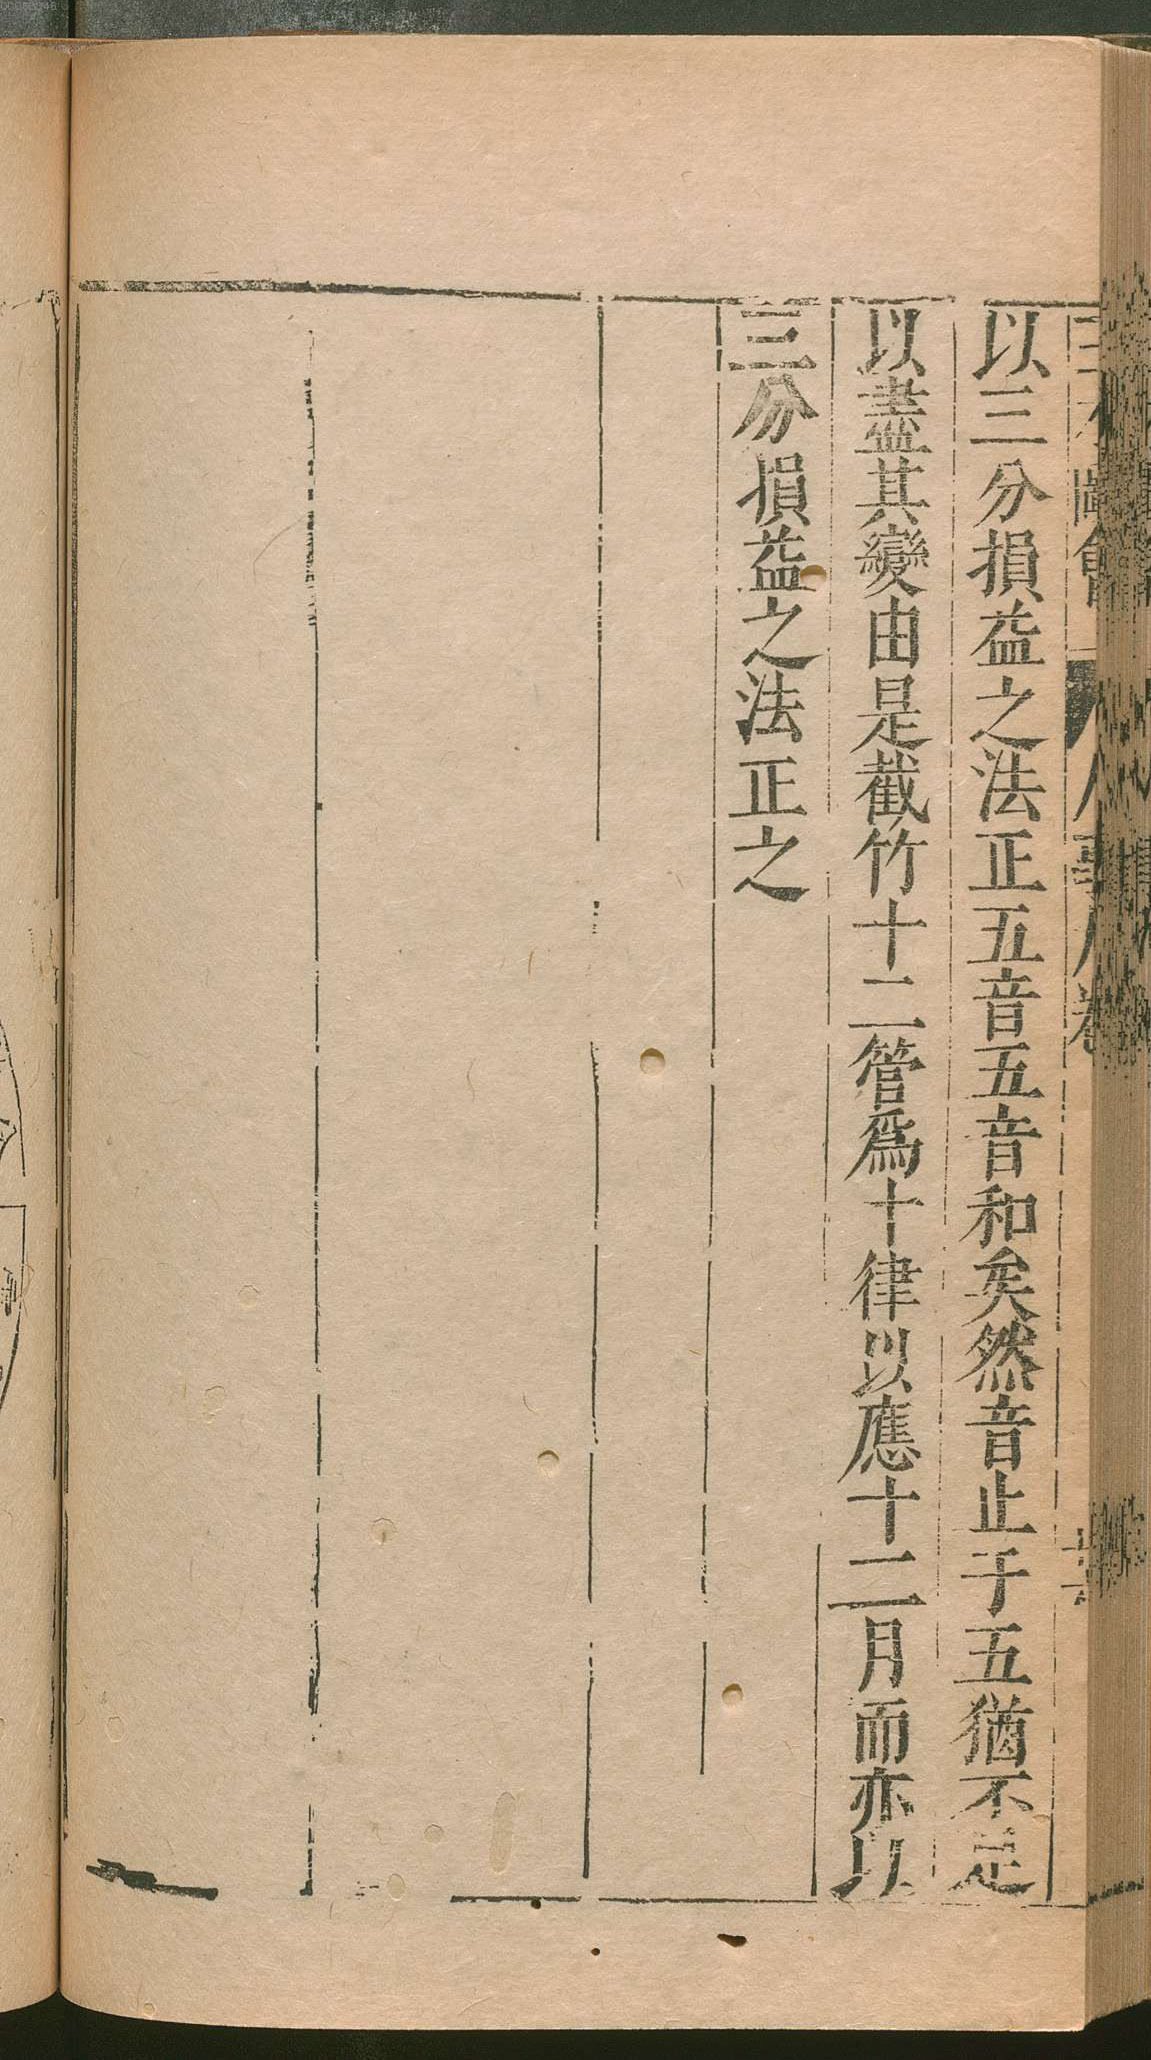 以三分損益之法正五音五音和矣然音止于五猶不足
以盡其變由是截竹十二管爲十律以應十二月而亦以
三分損益之法正之